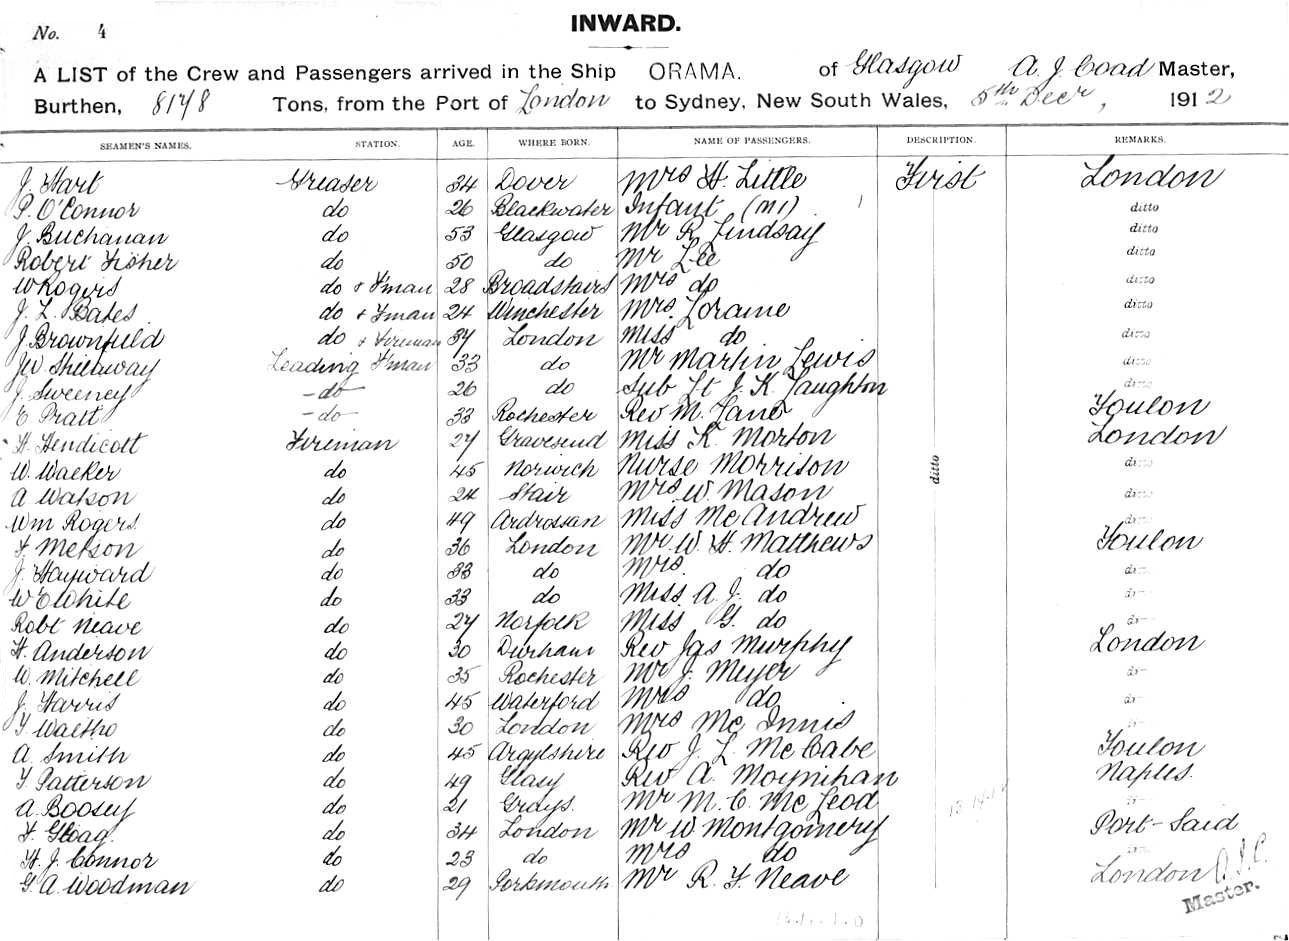 No. 4
INWARD.
A LIST of the Crew and Passengers arrived in the Ship ORAMA. of Glasgow A. J. Coad Master,
Burthen, 8178 Tons, from the Port of London to Sydney, New South Wales, 5th Decr, 1912
SEAMEN'S NAMES. STATION. AGE. WHERE BORN. NAME OF PASSENGERS. DESCRIPTION. REMARKS.
J. Hart Greaser 34 Dover Mrs H. Little First London
P. O'Connor do 26 Blackwater Infant (m1) 1 ditto
J. Buchanan do 53 Glasgow Mr R. Lindsay ditto
Robert Fisher do 50 do Mr Lee ditto
W Rogers do & F'man 28 Broadstairs Mrs do ditto
J. L. Bates do & F'man 24 Winchester Mrs. Loraine ditto
J. Brownfield do & Fireman 37 London Miss do ditto
JW Shillaway Leading F'man 33 do Mr Martin Lewis ditto
J. Sweeney - do - 26 do Sub Lt J. K. Laughton ditto
E Pratt - do - 33 Rochester Rev M. Lane Toulon
H. Hendicott Fireman 27 Gravesend Miss K. Morton London
W. Walker do 45 Norwich Nurse Morrison ditto ditto
A Watson do 24 Stair Mrs W. Mason ditto
Wm Rogers do 49 Ardrossan Miss McAndrew ditto
F. Metson do 36 London Mr. W. H. Matthews Toulon
J. Hayward do 33 do Mrs. do ditto
W E White do 33 do Miss. A. J. do do
Robt Neave do 27 Norfolk Miss. G. do do
H. Anderson do 30 Durham Rev Jas Murphy London
W. Mitchell do 35 Rochester Mr J. Meyer do
J. Harris do 45 Waterford Mrs do do
T Waltho do 30 London Mrs McInnis do
A. Smith do 45 Argylshire Rev J. L. McCabe Toulon
T. Patterson do 49 Rev A. Moynihan Naples.
A. Boosey do 21 Grays. Mr M. C. McLeod do
F. Gloag. do 34 London Mr W Montgomery Port-Said
H. J. Connor do 23 do Mrs do
G. A. Woodman do 29 Portsmouth Mr R. F. Neave London A. J. C.
Master.